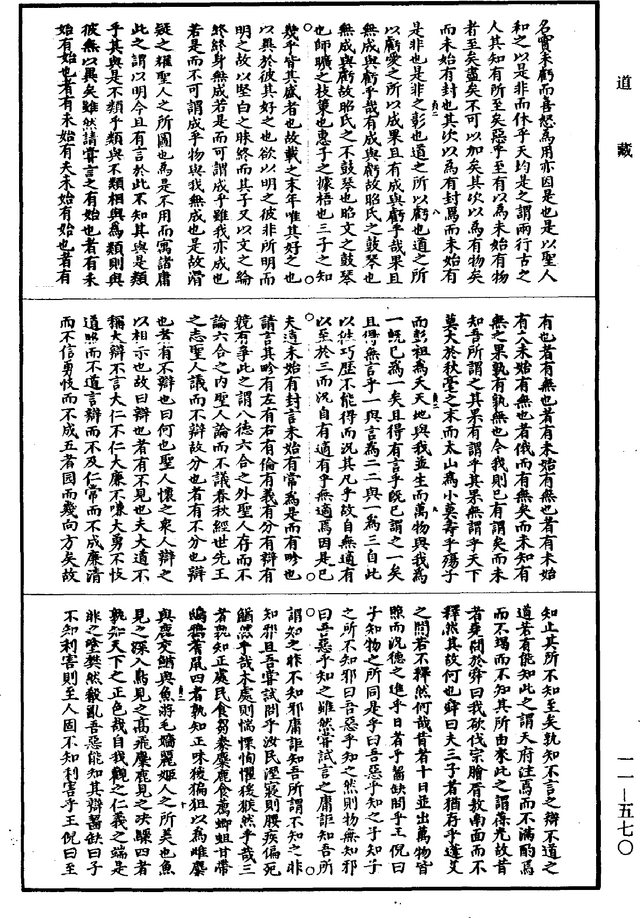 道藏
名實未虧而喜怒為用亦因是也是以聖人
和之以是非而休乎天均是之謂兩行古之
人其知有所至矣惡乎至有以為未始有物
者至矣盡矣不可以加矣其次以為有物矣
而未始有封也其次以為有封焉而未始有
是非也是非之彰也道之所以虧也道之所
以虧愛之所以成果且有成與虧乎哉果且
無成與虧乎哉有成與虧故昭氏之鼓琴也
無成與虧故昭氏之不鼓琴也昭文之鼓琴
也師曠之枝策也惠子之據梧也三子之知
幾乎皆其盛者也故載之末年唯其好之也
以異於彼其好之也欲以明之彼非所明而
明之故以堅白之昧終而其子又以文之綸
終終身無成若是而可謂成乎雖我亦成也
若是而不可謂成乎物與我無成也是故滑
疑之耀聖人之所圖也為是不用而寓諸庸
此之謂以明今且有言於此不知其與是類
乎其與是不類乎類與不類相與為類則與
彼無以異矣雖然請嘗言之有始也者有未
始有始也者有未始有夫未始有始也者有
有也者有無也者有未始有無也者有未始
有夫未始有無也者俄而有無矣而未知有
無之果孰有孰無也今我則已有謂矣而未
知吾所謂之其果有謂乎其果無謂乎天下
莫大於秋毫之末而太山為小莫壽乎殤子
而彭祖為夭天地與我並生而萬物與我為
一既已為一矣且得有言乎既已謂之一矣
且得無言乎一與言為二二與一為三自此
以往巧歷不能得而況其凡乎故自無適有
以至於三而況自有適有乎無適焉因是已
夫道未始有封言未始有常為是而有畛也
請言其畛有左有右有倫有義有分有辯有
競有爭此之謂八德六合之外聖人存而不
論六合之內聖人論而不議春秋經世先王
之志聖人議而不辯故分也者有不分也辯
也者有不辯也曰何也聖人懷之眾人辯之
以相示也故曰辯也者有不見也夫大道不
稱大辯不言大仁不仁大廉不嗛大勇不忮
道昭而不道言辯而不及仁常而不成廉清
而不信勇忮而不成五者因而幾向方矣故
知止其所不知至矣孰知不言之辯不道之
道若有能知此之謂天府注焉而不滿酌焉
而不竭而不知其所由來此之謂葆光故昔
者堯問於舜曰我欲伐宗膾胥敖南面而不
釋然其故何也舜曰夫三子者猶存乎蓬艾
之間若不釋然何哉昔者十日並出萬物皆
照而況德之進乎日者乎齧缺問乎王倪曰
子知物之所同是乎曰吾惡乎知之子知子
之所不知邪曰吾惡乎知之然則物無知邪
曰吾惡乎知之雖然嘗試言之庸詎知吾所
謂知之非不知邪庸詎知吾所謂不知之非
知邪且吾嘗試問乎汝民溼寢則腰疾偏死
鰌然乎哉木處則惴慄恂懼猨猴然乎哉三
者孰知正處民食芻豢麋鹿食薦蝍蛆甘帶
鴟鴉耆鼠四者孰知正味猨猵狙以為雌麋
與鹿交鰌與魚游毛嬙麗姬人之所美也魚
見之深入鳥見之高飛麋鹿見之決驟四者
孰知天下之正色哉自我觀之仁義之端是
非之塗樊然殽亂吾惡能知其辯齧缺曰子
不知利害則至人固不知利害乎王倪曰至
一一—五七〇